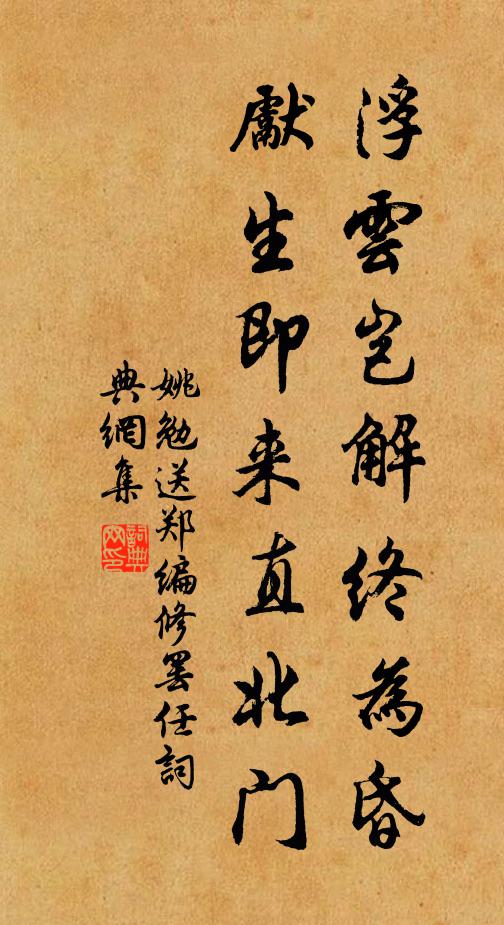 浮雲岂解终為昏
獻生即来直北门
姚勉送郑编修罢任詞
典網集
詞典网印